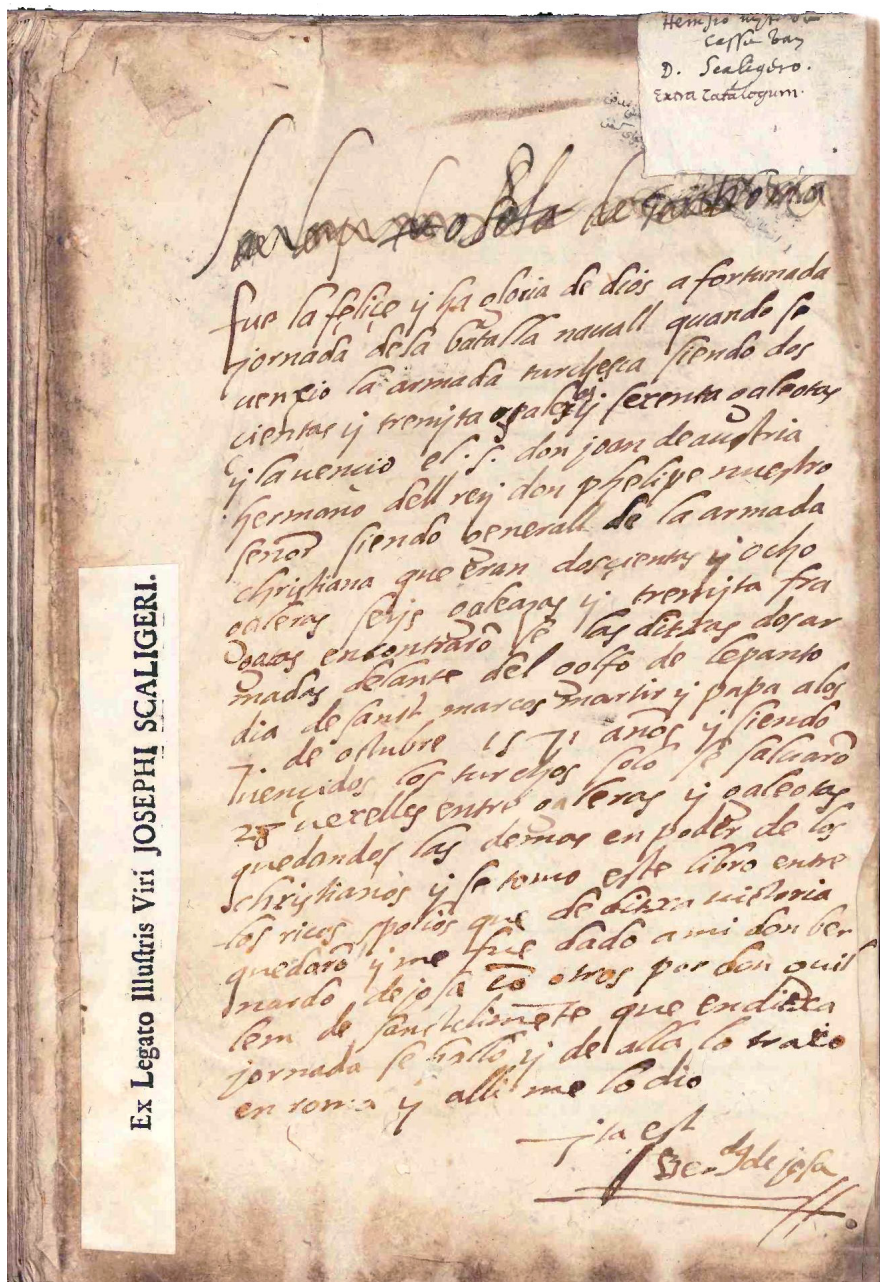 D. Scaligero.
Extra Catalogum.
fue la feliçe y ha gloria de dios afortunada
jornada dela batalla nauall quando se
uencio la armada turchesca siendo dos
cientas y tremyta galeras y sexenta galeotas
y la uencio el .S. don joan de austria
hermano dell rey don phelipe nuestro
señor siendo generall de la armada
christiana que eran doscientas y ocho
galeras seys galeazas y tremyta fra
gatas encontrarõ se las ditxas dos ar
madas delante del golfo de lepanto
dia de sanct marcos martir y papa a los
7 de octubre 1571 años y siendo
uençidos los turchos solo se saluarõ
28 uexelles entre galeras y galeotas
quedandos las demas en poder de los
christianos y se tomo este libro entre
los ricos spolios que de ditxa uictoria
quedarõ y me fue dado a mi don ber
nardo de josa cõ otros por don guil
lem de sanctclimẽte que en ditxa
jornada se hallo y de alla lo traxo
en roma y alli me lo dio
yta est
Ber.do de josa
Ex Legato Illuſtris Viri JOSEPHI SCALIGERI.